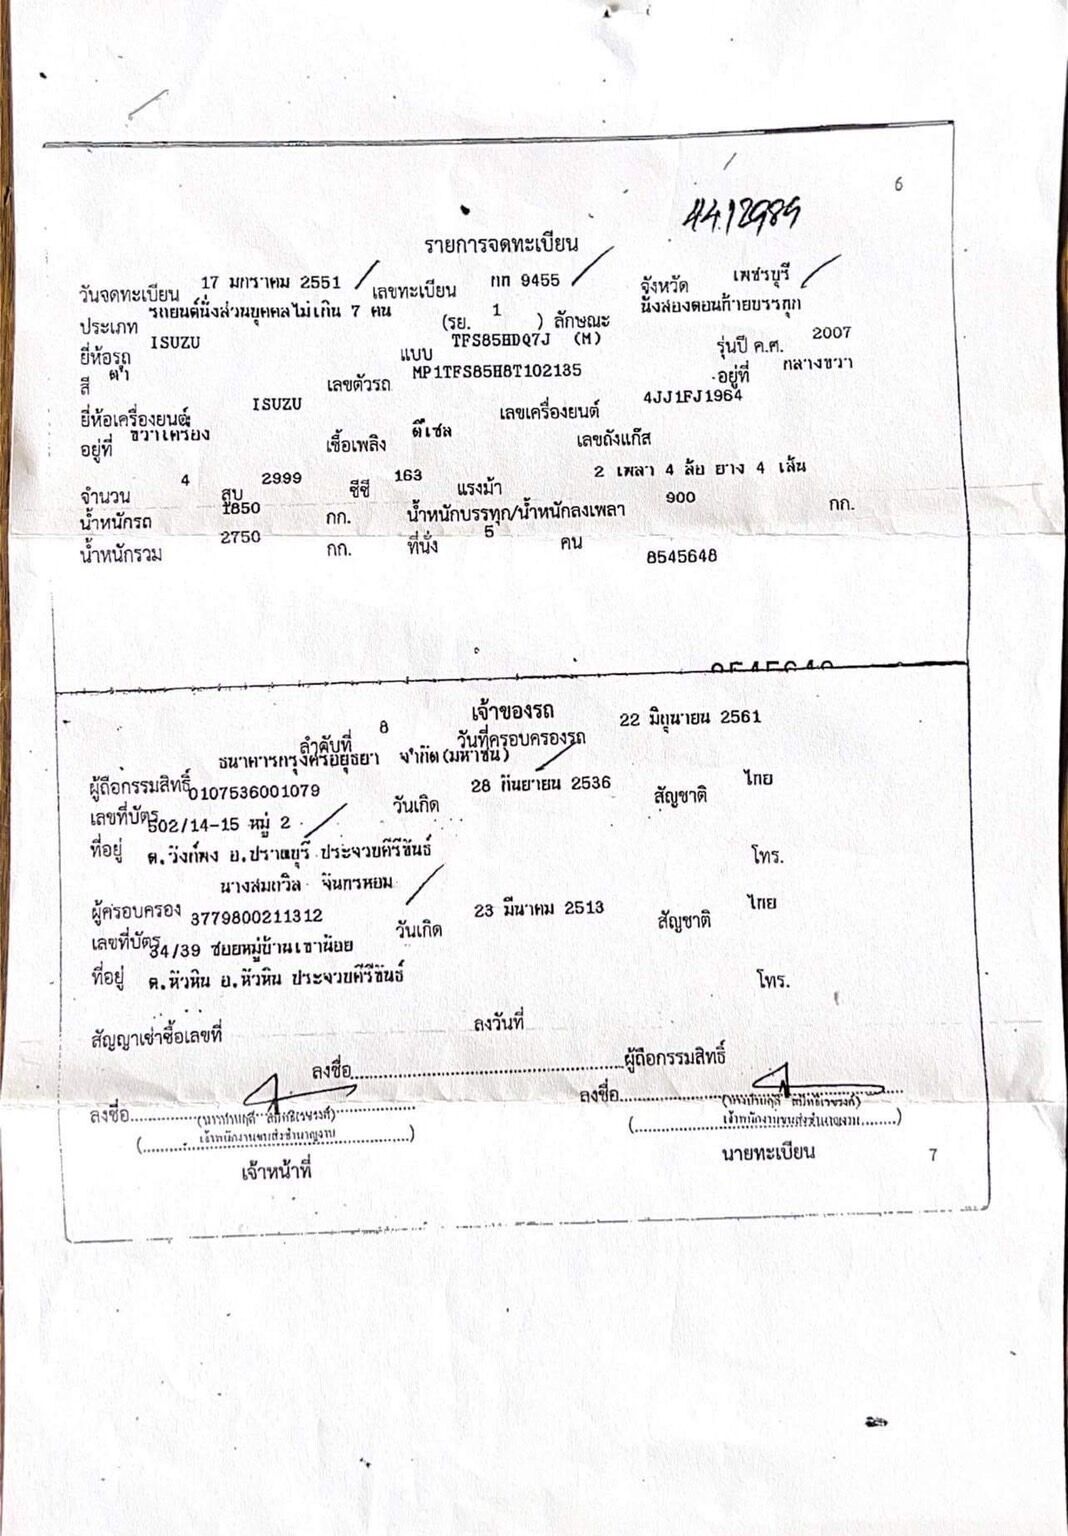 6
4412989
รายการจดทะเบียน
วันจดทะเบียน 17 มกราคม 2551 เลขทะเบียน กท 9455 จังหวัด เพชรบุรี
ประเภท รถยนต์นั่งส่วนบุคคลไม่เกิน 7 คน (รย. 1 ) ลักษณะ นั่งสองตอนท้ายบรรทุก
ยี่ห้อรถ ISUZU แบบ TFS85HDQ7J (M) รุ่นปี ค.ศ. 2007
สี ดำ เลขตัวรถ MP1TFS85H8T102135 อยู่ที่ กลางขวา
ยี่ห้อเครื่องยนต์ ISUZU เลขเครื่องยนต์ 4JJ1FJ1964
อยู่ที่ ขวาเครื่อง เชื้อเพลิง ดีเซล เลขถังแก๊ส
จำนวน 4 สูบ 2999 ซีซี 163 แรงม้า 2 เพลา 4 ล้อ ยาง 4 เส้น
น้ำหนักรถ 1850 กก. น้ำหนักบรรทุก/น้ำหนักลงเพลา 900 กก.
น้ำหนักรวม 2750 กก. ที่นั่ง 5 คน 8545648
เจ้าของรถ
ลำดับที่ 8 วันที่ครอบครองรถ 22 มิถุนายน 2561
ผู้ถือกรรมสิทธิ์ ธนาคารกรุงศรีอยุธยา จำกัด(มหาชน)
เลขที่บัตร 0107536001079 วันเกิด 28 กันยายน 2536 สัญชาติ ไทย
ที่อยู่ 502/14-15 หมู่ 2
ต.วังก์พง อ.ปราณบุรี ประจวบคีรีขันธ์ โทร.
ผู้ครอบครอง นางสมถวิล จันทรหอม
เลขที่บัตร 3779800211312 วันเกิด 23 มีนาคม 2513 สัญชาติ ไทย
ที่อยู่ 34/39 ซอยหมู่บ้านเขาน้อย
ต.หัวหิน อ.หัวหิน ประจวบคีรีขันธ์ โทร.
สัญญาเช่าซื้อเลขที่ ลงวันที่
ลงชื่อ ผู้ถือกรรมสิทธิ์
ลงชื่อ ลงชื่อ
เจ้าพนักงานขนส่งชำนาญงาน เจ้าพนักงานขนส่งชำนาญงาน
เจ้าหน้าที่ นายทะเบียน
7